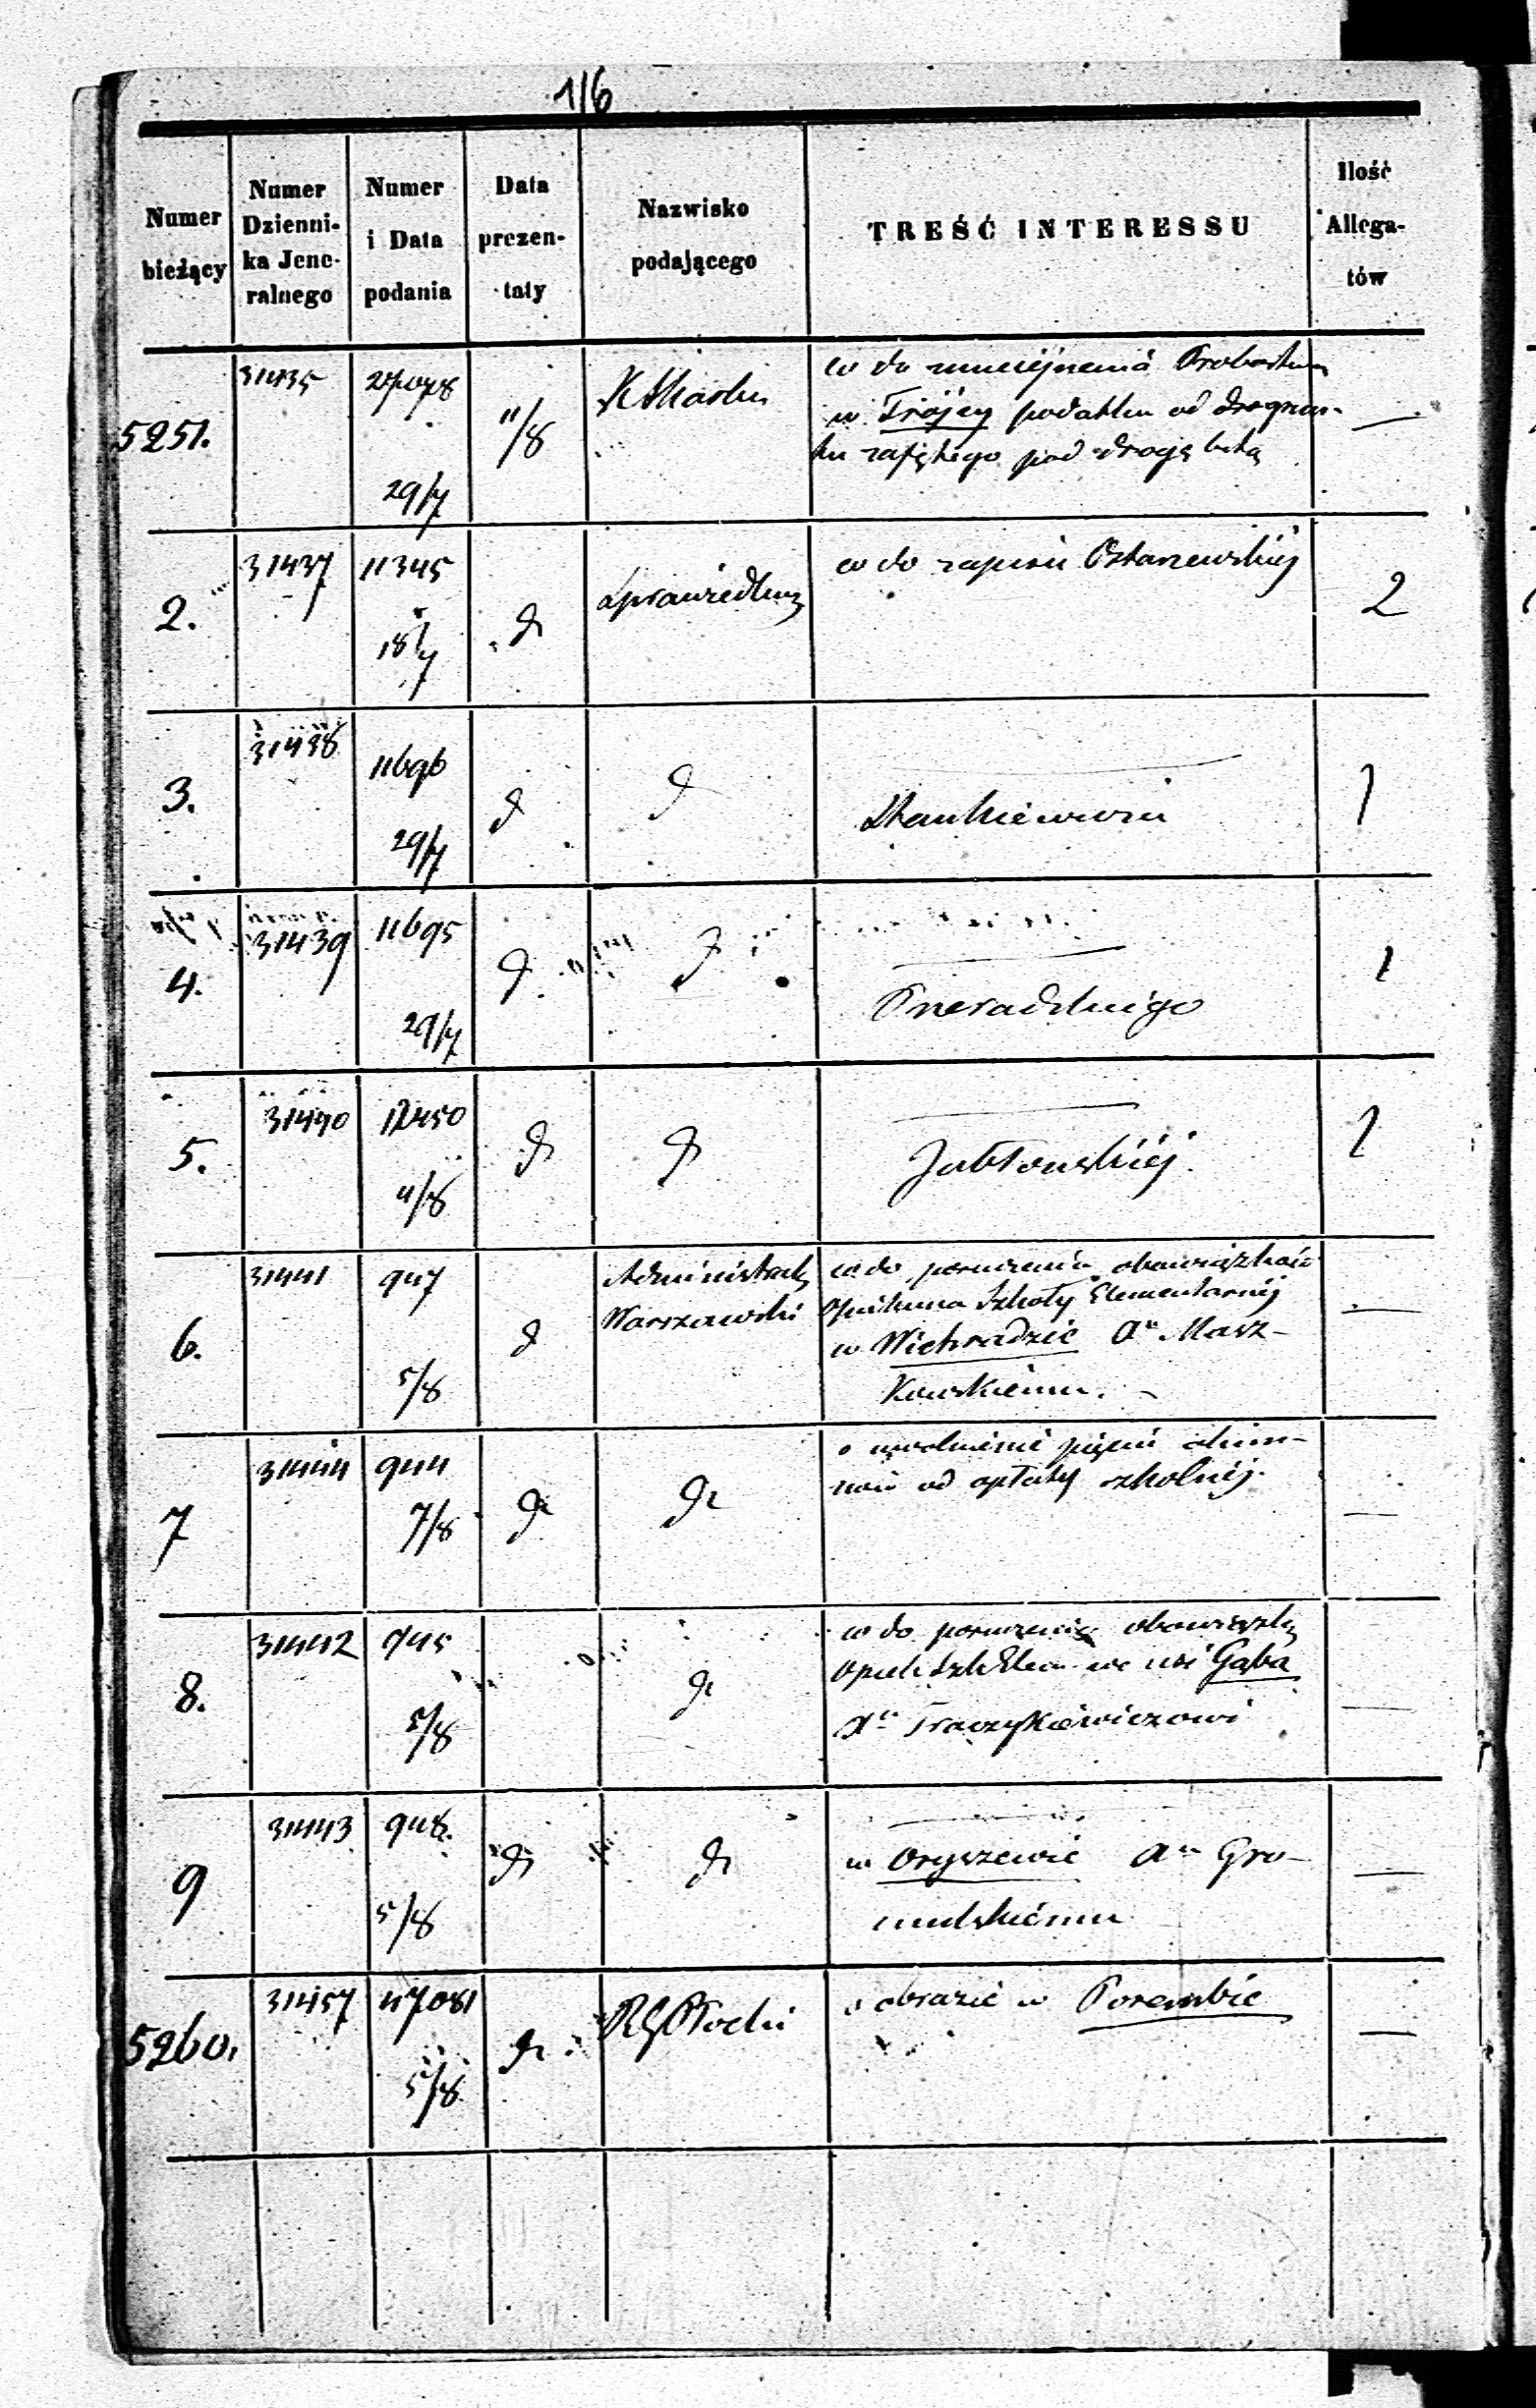 116
Numer bieżący
Numer Dzienni-ka Jene-ralnego
Numer i Data podania
Data prezen-taty
Nazwisko podającego
TREŚĆ INTERESSU
Ilość Allega-tów
5251.
31435
29/7
11/8
co do umniejszenia Probostwu
w Trójcy podatku od
zajętego pod drogę bitą
—
2.
31437
11345
18/7
d
co do zapisu Ostaszewskiéj
2
3.
31438
11696
29/7
d
d
Stankiewicza
1
4.
31439
11695
29/7
d
d
1
5.
31440
12450
4/8
d
d
Jabłońskiéj.
1
6.
31441
947
5/8
d
Administrat
Warszawski
co do poruczenia obowiązków
Opiekuna Szkoły Elementarnéj
w Wichradzie Xu Masz-
kowskiemu.
—
7
31444
944
7/8
dt
dt
o uwolnienie pięciu alum-
nów od opłaty szkolnéj.
—
8.
31442
945
5/8
dt
co do poruczenia obowiązku
Opiek Szk Elem we wsi Gąba
Xu Traczykiewiczowi
—
9
31443
948.
5/8
dt
dt
w Oryszewie Xu Gro-
madskiemu
—
5260.
31457
47081
5/8
dt
RG Płocki
o obrazie w Porembie
—